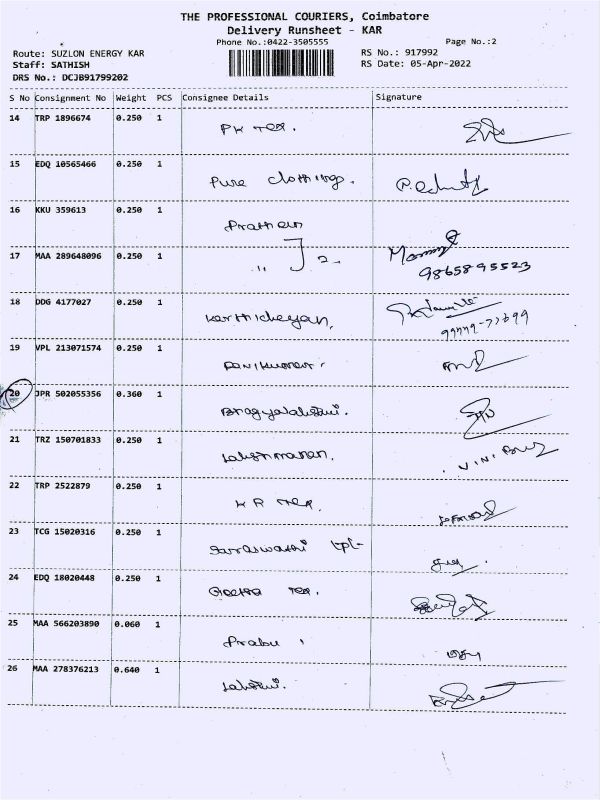 THE PROFESSIONAL COURIERS, Coimbatore
Delivery Runsheet - KAR
Phone No.:0422-3505555 Page No.:2
Route: SUZLON ENERGY KAR RS No.: 917992
Staff: SATHISH RS Date: 05-Apr-2022
DRS No.: DCJB91799202
S No Consignment No Weight PCS Consignee Details Signature
14 TRP 1896674 0.250 1
PK Tex.
15 EDQ 10565466 0.250 1
Pure clothing.
16 KKU 359613 0.250 1
17 MAA 289648096 0.250 1
" ] 2-
9865895523
18 DDG 4177027 0.250 1
Karthicheyan,
19 VPL 213071574 0.250 1
20 JPR 502055356 0.360 1
Bhagyalakshmi.
21 TRZ 150701833 0.250 1
Lakshmanan.
22 TRP 2522879 0.250 1
K R Tex.
23 TCG 15020316 0.250 1
Saraswathi
24 EDQ 18020448 0.250 1
Geetha Tex.
25 MAA 566203890 0.060 1
Prabu
26 MAA 278376213 0.640 1
Lakshmi.